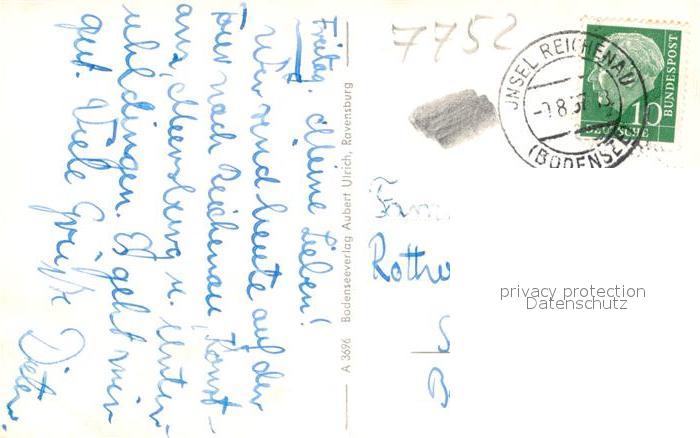 Freitag. Meine Lieben!
Wir sind heute auf der
Tour nach Reichenau, Konst-
anz, Meersburg u. Unter-
uhldingen. Es geht mir
gut. Viele Grüße
Dieter.
A 3696 Bodenseeverlag Aubert Ulrich, Ravensburg
7752
JNSEL REICHENAU
(BODENSEE)
10
DEUTSCHE
BUNDESPOST
Rothe
privacy protection
Datenschutz